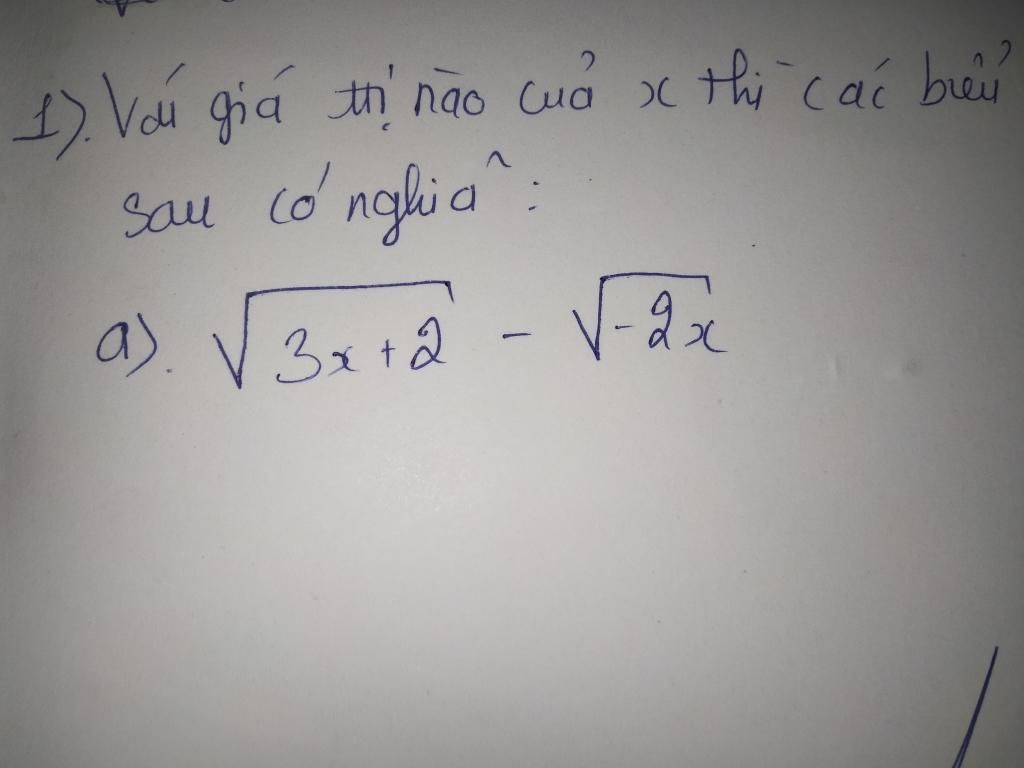 1). Với giá trị nào của x thì các biểu
sau có nghĩa :
a). √(3x+2) - √(-2x)